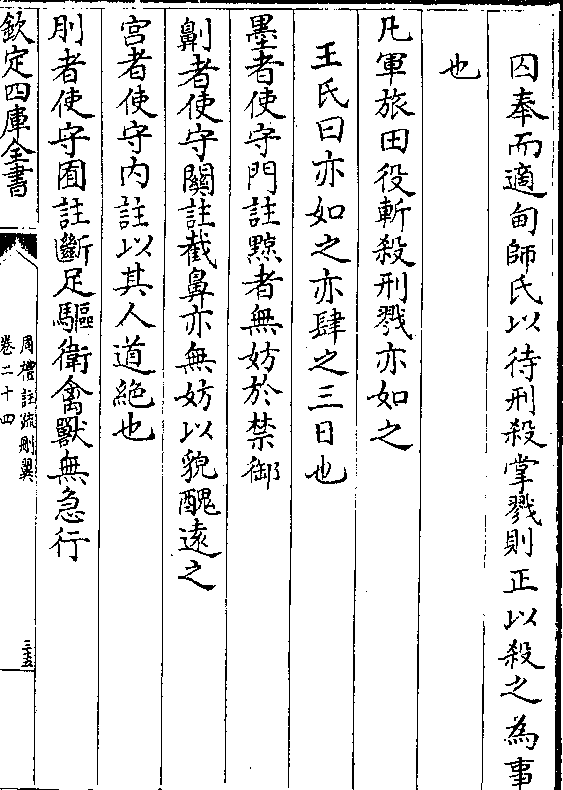 囚奉而適甸師氏以待刑殺掌戮則正以殺之為事
也
凡軍旅田役斬殺刑戮亦如之
王氏曰亦如之亦肆之三日也
墨者使守門註黥者無妨於禁御
劓者使守關註截鼻亦無妨以貌醜逺之
宮者使守内註以其人道絶也
刖者使守囿註斷足驅衛禽獸無急行
欽定四庫全書
周禮註疏刪翼
卷二十四
三十五